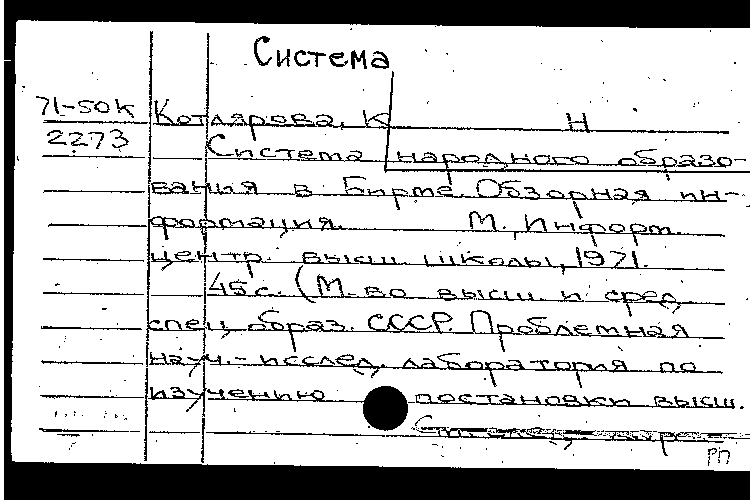 Система
71-50К Котлярова, К Н
2273 Система народного образо-
вания в Бирме. Обзорная ин-
формация. М., Информ.
центр. высш. школы, 1971.
45 с. (М-во высш. и сред.
спец. образ. СССР. Проблемная
науч.-исслед. лаборатория по
изучению постановки высш.
РП